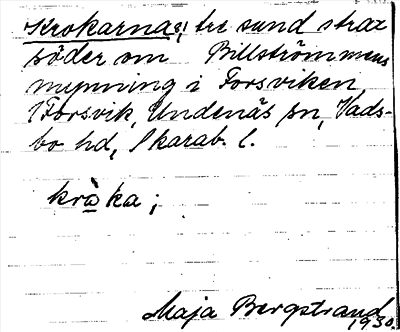 Krokarna, tre sund strax
söder om Billströmmens
mynning i Forsviken,
Forsvik, Undenäs sn, Vads-
bo hd, Skarab. l.
kråka;
Maja Bergstrand
1930.